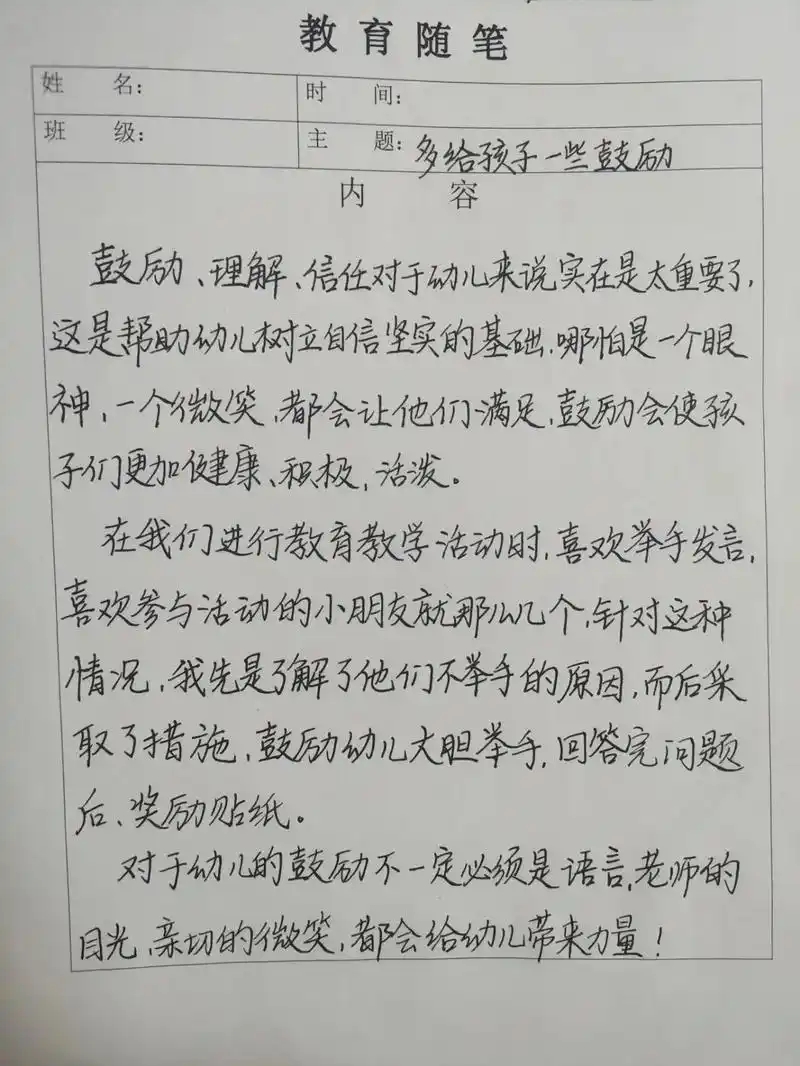 教育随笔
姓 名:
时 间:
班 级:
主 题: 多给孩子一些鼓励
内 容
鼓励、理解、信任对于幼儿来说实在是太重要了,
这是帮助幼儿树立自信坚实的基础,哪怕是一个眼
神,一个微笑,都会让他们满足,鼓励会使孩
子们更加健康、积极,活泼。
在我们进行教育教学活动时,喜欢举手发言,
喜欢参与活动的小朋友就那么几个,针对这种
情况,我先是了解了他们不举手的原因,而后采
取了措施,鼓励幼儿大胆举手,回答完问题
后、奖励贴纸。
对于幼儿的鼓励不一定必须是语言,老师的
目光,亲切的微笑,都会给幼儿带来力量!